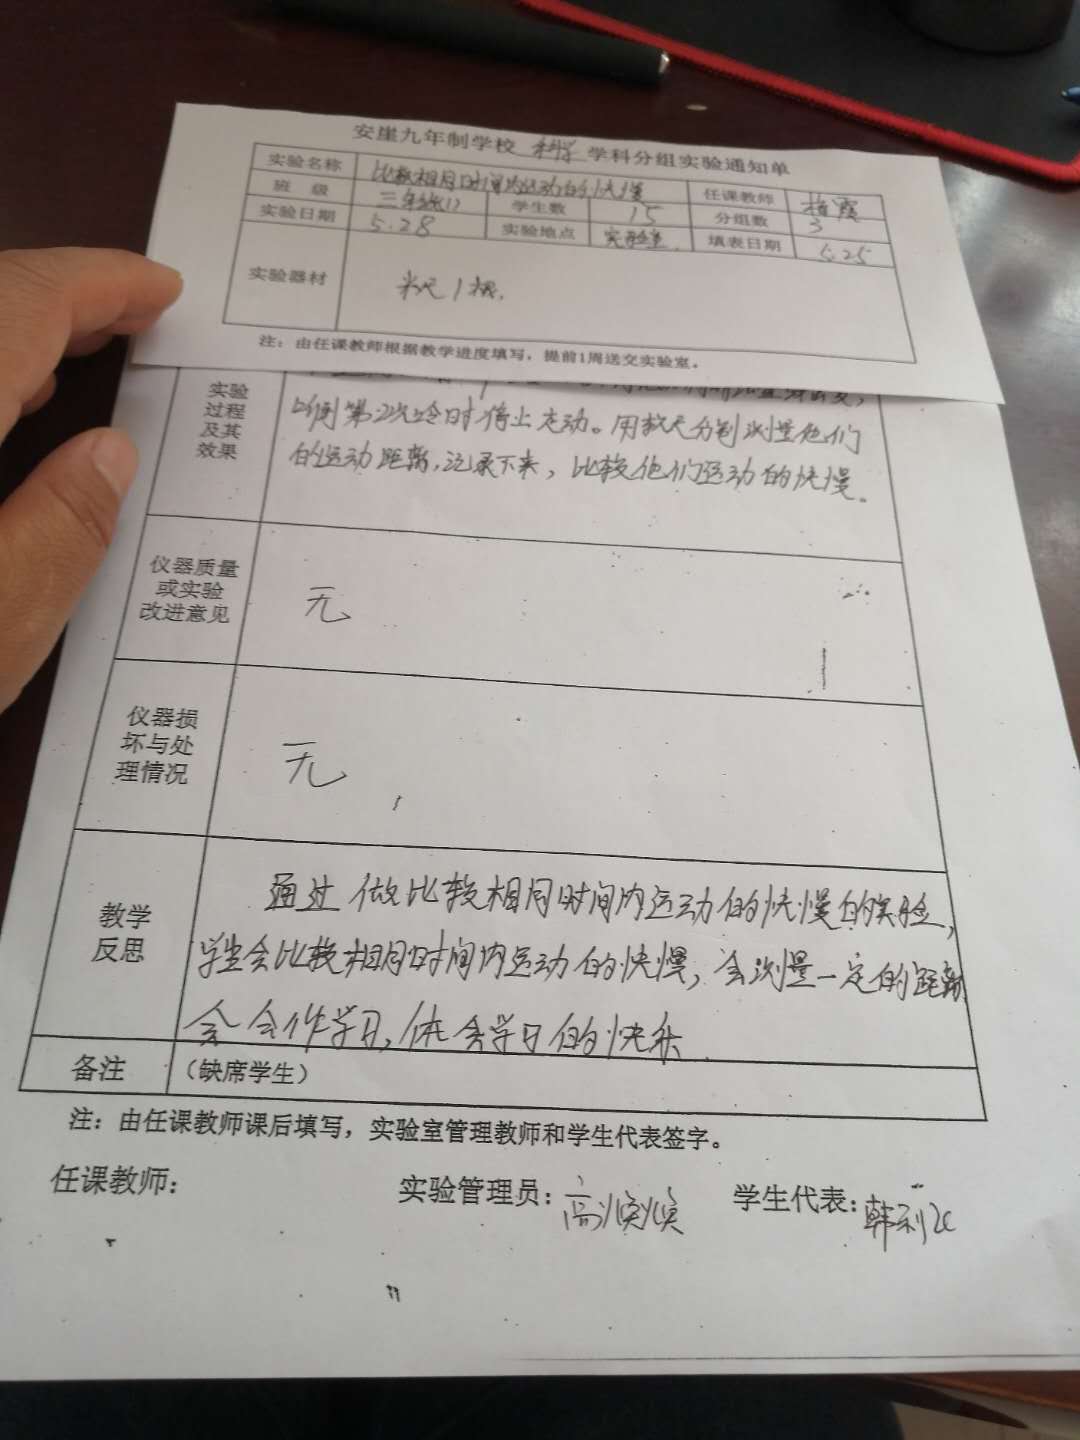 安崖九年制学校 科学 学科分组实验通知单
实验名称 比较相同时间内运动的快慢 任课教师
班 级 三年级(1) 学生数 15 分组数 3
实验日期 5.28 实验地点 实验室 填表日期 5.25
实验器材 米尺1根.
注：由任课教师根据教学进度填写，提前1周送交实验室。
实验
过程
及其
效果
听到第2次铃时停止走动。用软尺分别测量他们
的运动距离,记录下来，比较他们运动的快慢。
仪器质量
或实验
改进意见
无
仪器损
坏与处
理情况
无
教学
反思
通过做比较相同时间内运动的快慢的实验,
学生会比较相同时间内运动的快慢，会测量一定的距离
会合作学习,体会学习的快乐
备注 （缺席学生）
注：由任课教师课后填写，实验室管理教师和学生代表签字。
任课教师： 实验管理员：高焕焕 学生代表：韩利